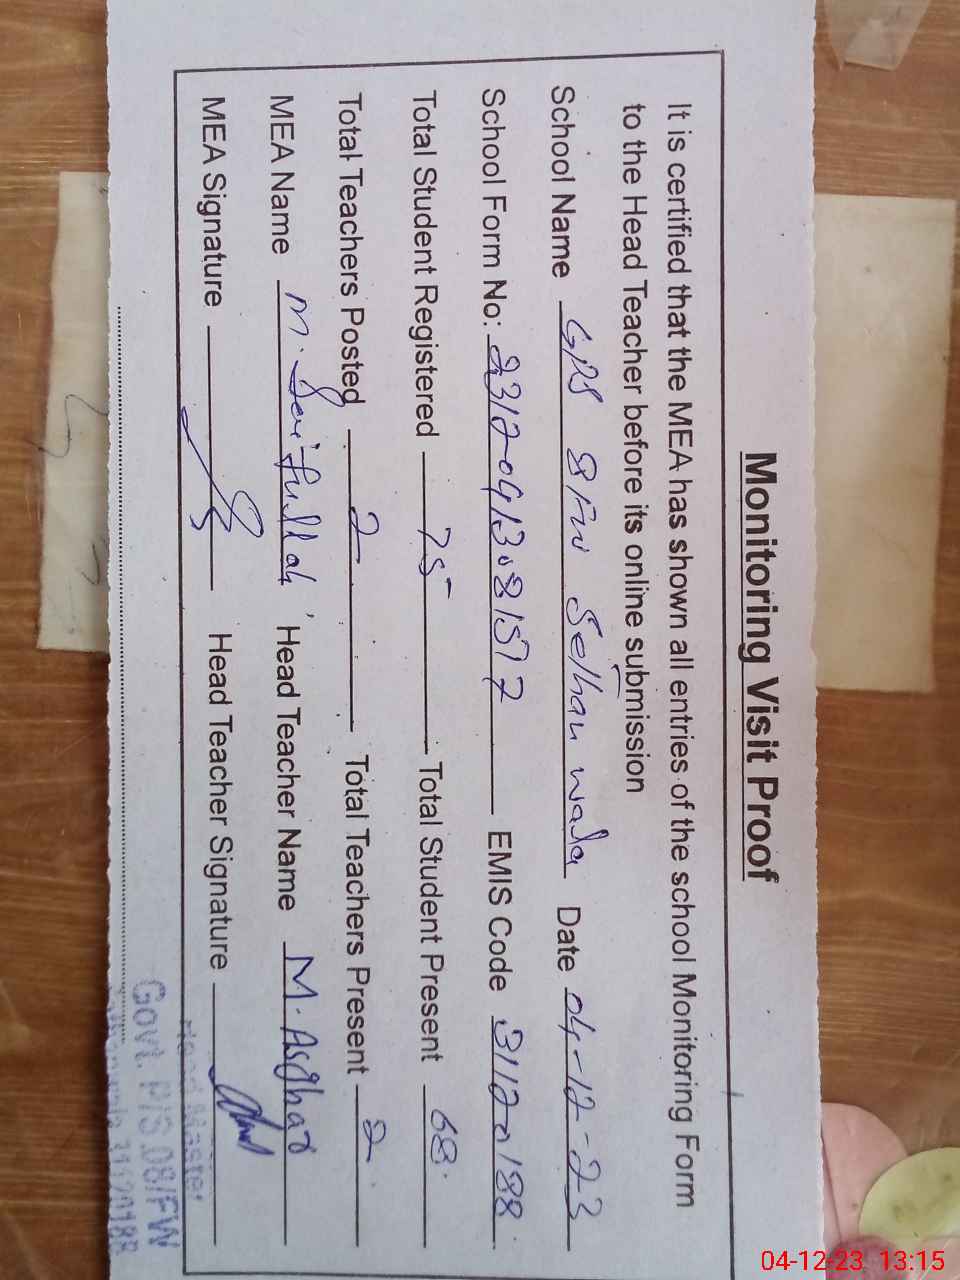 Monitoring Visit Proof
It is certified that the MEA has shown all entries of the school Monitoring Form
to the Head Teacher before its online submission
School Name GPS 8/FW Selhan wala Date 04-12-23
School Form No: 2312041308157 EMIS Code 31120188
Total Student Registered 75 Total Student Present 68
Total Teachers Posted 2 Total Teachers Present 2
MEA Name M. Saifullah Head Teacher Name M. Asghar
MEA Signature Head Teacher Signature
Head Master
Govt. P/S 08/FW
31120188
04-12-23 13:15